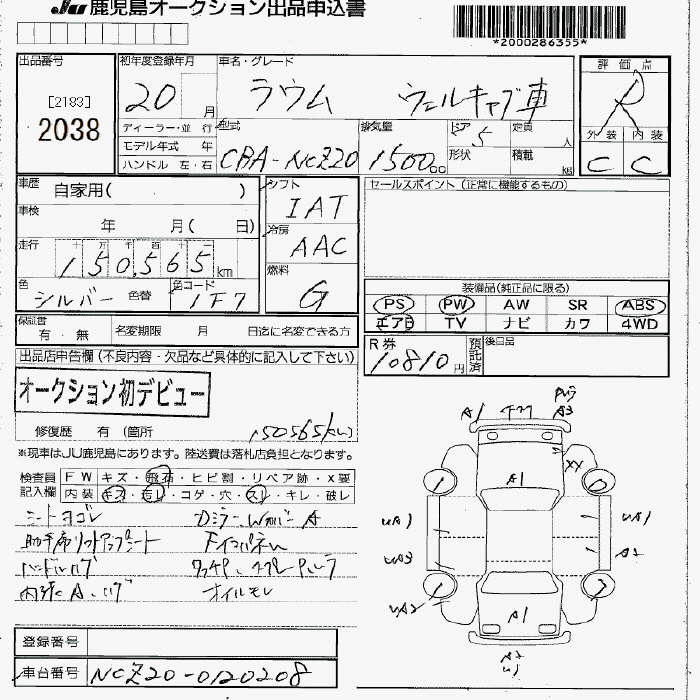 JU 鹿児島オークション出品申込書
*2000286355*
出品番号
[2183]
2038
初年度登録年月
20 月
車名・グレード
ラウム ウェルキャブ車
評価点
R
外装 内装
C C
ディーラー・並 行
モデル年式 年
ハンドル 左・右
型式
CBA-NCZ20
排気量
1500 cc
ドア 5
形状
定員 人
積載 kg
車歴 自家用( )
車検
年 月( 日)
走行 十 万 千 百 十 一
150,565 km
色 シルバー 色替
色コード
1F7
シフト
IAT
冷房
AAC
燃料
G
セールスポイント(正常に機能するもの)
装備品(純正品に限る)
PS PW AW SR ABS
エアB TV ナビ カワ 4WD
保証書
有・無
名変期限 月 日迄に名変できる方
R券
10810円
預託済
後日品
出品店申告欄(不良内容・欠品など具体的に記入して下さい)
オークション初デビュー
修復歴 有(箇所
150565km
※現車はJU鹿児島にあります。陸送費は落札店負担となります。
検査員記入欄
FW キズ・飛石・ヒビ割・リペア跡・X要
内装 キズ・汚レ・コゲ・穴・スレ・キレ・破レ
シートヨゴレ
助手席リフトアップシート
ハンドルハゲ
内張A.ハゲ
オイルモレ
A1
A3
A1
XX
UA1
UA1
UA3
A2
UA2
A1
A2
U1
登録番号
車台番号 NCZ20-0120208